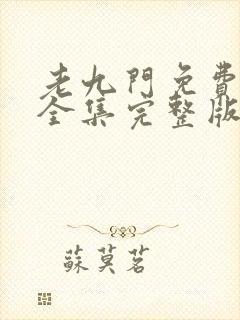 老九門免費
全集完整版
蘇莫茗